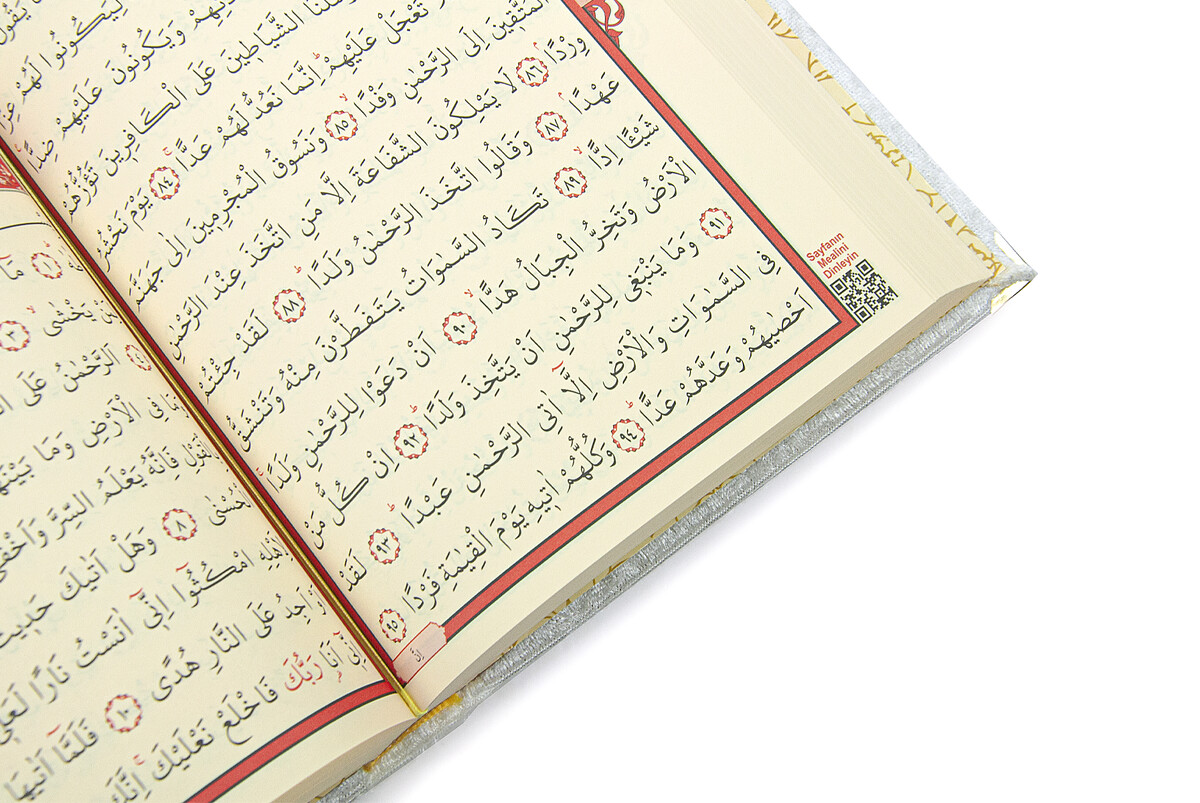 يَقُولُ
لِيَكُونُوا لَهُمْ عِزًّا
وَيَكُونُونَ عَلَيْهِمْ ضِدًّا
الشَّيَاطِينَ عَلَى الْكَافِرِينَ تَؤُزُّهُمْ
تَعْجَلْ عَلَيْهِمْ اِنَّمَا نَعُدُّ لَهُمْ عَدًّا ٨٤ يَوْمَ نَحْشُرُ
الْمُتَّقِينَ اِلَى الرَّحْمٰنِ وَفْدًا ٨٥ وَنَسُوقُ الْمُجْرِمِينَ اِلٰى جَهَنَّمَ
وِرْدًا ٨٦ لَا يَمْلِكُونَ الشَّفَاعَةَ اِلَّا مَنِ اتَّخَذَ عِنْدَ الرَّحْمٰنِ
عَهْدًا ٨٧ وَقَالُوا اتَّخَذَ الرَّحْمٰنُ وَلَدًا ٨٨ لَقَدْ جِئْتُمْ
شَيْـًٔا اِدًّا ٨٩ تَكَادُ السَّمٰوَاتُ يَتَفَطَّرْنَ مِنْهُ وَتَنْشَقُّ
الْاَرْضُ وَتَخِرُّ الْجِبَالُ هَدًّا ٩٠ اَنْ دَعَوْا لِلرَّحْمٰنِ وَلَدًا
٩١ وَمَا يَنْبَغِي لِلرَّحْمٰنِ اَنْ يَتَّخِذَ وَلَدًا ٩٢ اِنْ كُلُّ مَنْ
فِي السَّمٰوَاتِ وَالْاَرْضِ اِلَّٓا اٰتِي الرَّحْمٰنِ عَبْدًا ٩٣ لَقَدْ
اَحْصٰيهُمْ وَعَدَّهُمْ عَدًّا ٩٤ وَكُلُّهُمْ اٰتِيهِ يَوْمَ الْقِيٰمَةِ فَرْدًا ٩٥
Sayfanın
Mealini
Dinleyin
١ مَٓا
يَخْشٰى ٣
اَلرَّحْمٰنُ عَلَى
فِي الْاَرْضِ وَمَا
فَاِنَّهُ يَعْلَمُ السِّرَّ وَاَخْفٰى
الْحُسْنٰى ٨ وَهَلْ اَتٰيكَ حَدِيثُ
امْكُثُٓوا اِنِّٓي اٰنَسْتُ نَارًا
اَجِدُ عَلَى النَّارِ هُدًى ١٠ فَلَمَّٓا اَتٰيهَا
اَنَا رَبُّكَ فَاخْلَعْ نَعْلَيْكَ اِنَّكَ